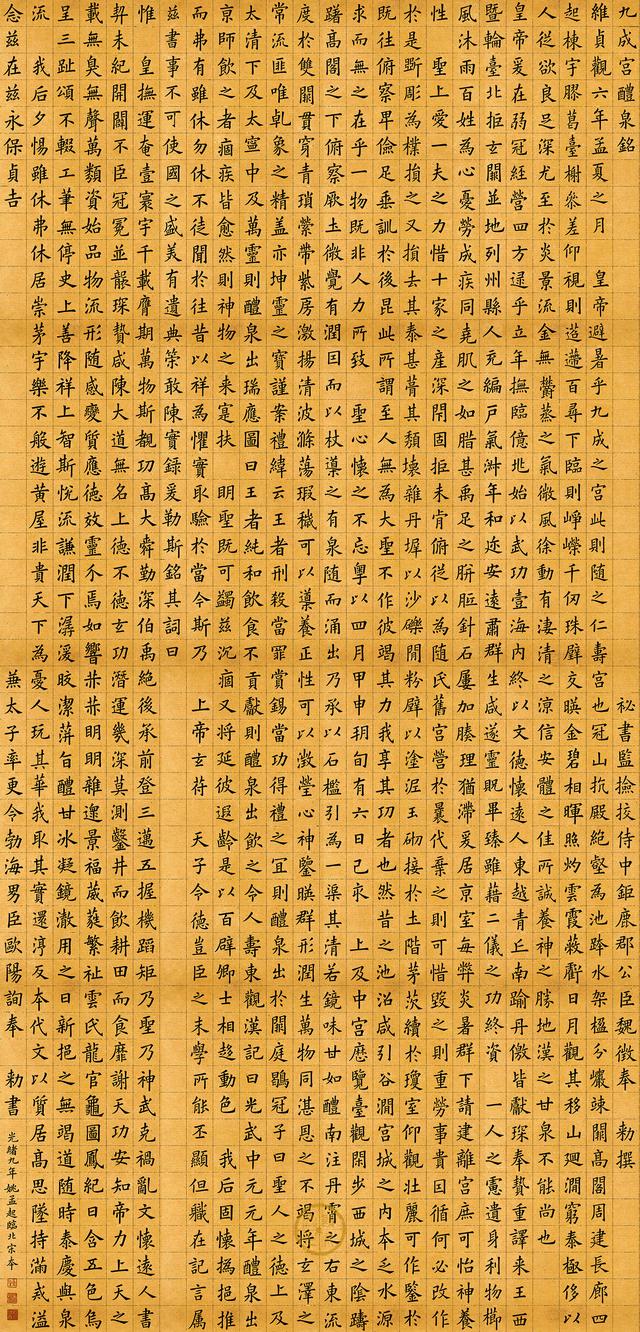 九成宮醴泉銘　祕書監撿挍侍中鉅鹿郡公臣魏徵奉　勅撰
維貞觀六年孟夏之月　皇帝避暑乎九成之宮此則隨之仁壽宮也冠山抗殿絕壑為池跨水架楹分巖竦闕高閣周建長廊四
起棟宇膠葛臺榭參差仰視則迢遰百尋下臨則崢嶸千仞珠璧交暎金碧相暉照灼雲霞蔽虧日月觀其移山迴澗窮泰極侈以
人從欲良足深尤至於炎景流金無鬱蒸之氣微風徐動有淒清之涼信安體之佳所誠養神之勝地漢之甘泉不能尚也
皇帝爰在弱冠經營四方逮乎立年撫臨億兆始以武功壹海內終以文德懷遠人東越青丘南踰丹儌皆獻琛奉贄重譯來王西
暨輪臺北拒玄闕並地列州縣人充編戶氣淑年和迩安遠肅群生咸遂靈貺畢臻雖藉二儀之功終資　一人之慮遺身利物櫛
風沐雨百姓為心憂勞成疾同堯肌之如腊甚禹足之胼胝針石屢加腠理猶滯爰居京室每弊炎暑群下請建離宮庶可怡神養
性　聖上愛一夫之力惜十家之產深閉固拒未肯俯從以為隨氏舊宮營於曩代棄之則可惜毀之則重勞事貴因循何必改作
於是斲彫為樸損之又損去其泰甚葺其頹壞雜丹墀以沙礫間粉壁以塗泥玉砌接於土階茅茨續於瓊室仰觀壯麗可作鑒於
既往俯察卑儉足垂訓於後昆此所謂至人無為大聖不作彼竭其力我享其功者也然昔之池沼咸引谷澗宮城之內本乏水源
求而無之在乎一物既非人力所致　聖心懷之不忘粵以四月甲申朔旬有六日己亥　上及中宮歷覽臺觀閑步西城之陰躊
躇高閣之下俯察厥土微覺有潤因而以杖導之有泉隨而涌出乃承以石檻引為一渠其清若鏡味甘如醴南注丹霄之右東流
度於雙闕貫穿青瑣縈帶紫房激揚清波滌蕩瑕穢可以導養正性可以澂瑩心神鑒暎群形潤生萬物同湛恩之不竭將玄澤之
常流匪唯乾象之精盖亦坤靈之寶謹案禮緯云王者刑殺當罪賞錫當功得禮之宜則醴泉出於闕庭鶡冠子曰聖人之德上及
太清下及太寧中及萬靈則醴泉出瑞應圖曰王者純和飲食不貢獻則醴泉出飲之令人壽東觀漢記曰光武中元元年醴泉出
京師飲之者痼疾皆愈然則神物之來寔扶　明聖既可蠲茲沉痼又將延彼遐齡是以百辟卿士相趍動色　我后固懷撝挹推
而弗有雖休勿休不徒聞於往昔以祥為懼實取驗於當今斯乃　上帝玄符　天子令德豈臣之末學所能丕顯但職在記言屬
茲書事不可使國之盛美有遺典策敢陳實錄爰勒斯銘其詞曰
惟　皇撫運奄壹寰宇千載膺期萬物斯覩功高大舜勤深伯禹絕後承前登三邁五握機蹈矩乃聖乃神武克禍亂文懷遠人書
契未紀開闢不臣冠冕並襲琛贄咸陳大道無名上德不德玄功潛運幾深莫測鑿井而飲耕田而食靡謝天功安知帝力上天之
載無臭無聲萬類資始品物流形隨感變質應德效靈介焉如響赫赫明明雜遝景福葳蕤繁祉雲氏龍官龜圖鳳紀日含五色烏
呈三趾頌不輟工筆無停史上善降祥上智斯悅流謙潤下潺湲皎潔蓱旨醴甘冰凝鏡澈用之日新挹之無竭道隨時泰慶與泉
流　我后夕惕雖休弗休居崇茅宇樂不般遊黃屋非貴天下為憂人玩其華我取其實還淳反本代文以質居高思墜持滿戒溢
念茲在茲永保貞吉　兼太子率更令勃海男臣歐陽詢奉　勅書
光緒九年姚孟起臨北宋本